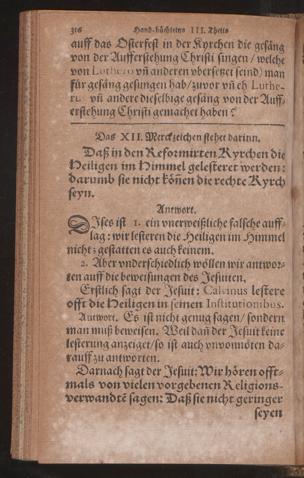 316 Hand-büchleins III. Theils
auff das Osterfest in der Kyrchen die gesäng
von der Aufferstehung Christi singen / welche
von Luthero vñ andern vbersetzet seind) man
für gesäng gesungen hab / zuvor vñ eh Luthe-
rus vñ andere dieselbige gesäng von der Auff-
erstehung Christi gemachet haben?
Das XII. Merckzeichen stehet darinn.
Daß in den Reformirten Kyrchen die
Heiligen im Himmel gelesteret werden:
darumb sie nicht köñen die rechte Kyrch
seyn.
Antwort.
DIses ist 1. ein vnerweißliche falsche auff-
lag: wir lesteren die Heiligen im Himmel
nicht: gestatten es auch keinem.
2. Aber vnderschiedlich wöllen wir antwor-
ten auff die beweisungen des Jesuiten.
Erstlich sagt der Jesuit: Calvinus lestere
offt die Heiligen in seinen Institutionibus.
Antwort. Es ist nicht genug sagen / sondern
man muß beweisen. Weil dañ der Jesuit keine
lesterung anzeiget / so ist auch vnvonnöten da-
rauff zu antworten.
Darnach sagt der Jesuit: Wir hören offt-
mals von vielen vorgebenen Religions-
verwandtẽ sagen: Daß sie nicht geringer
seyen